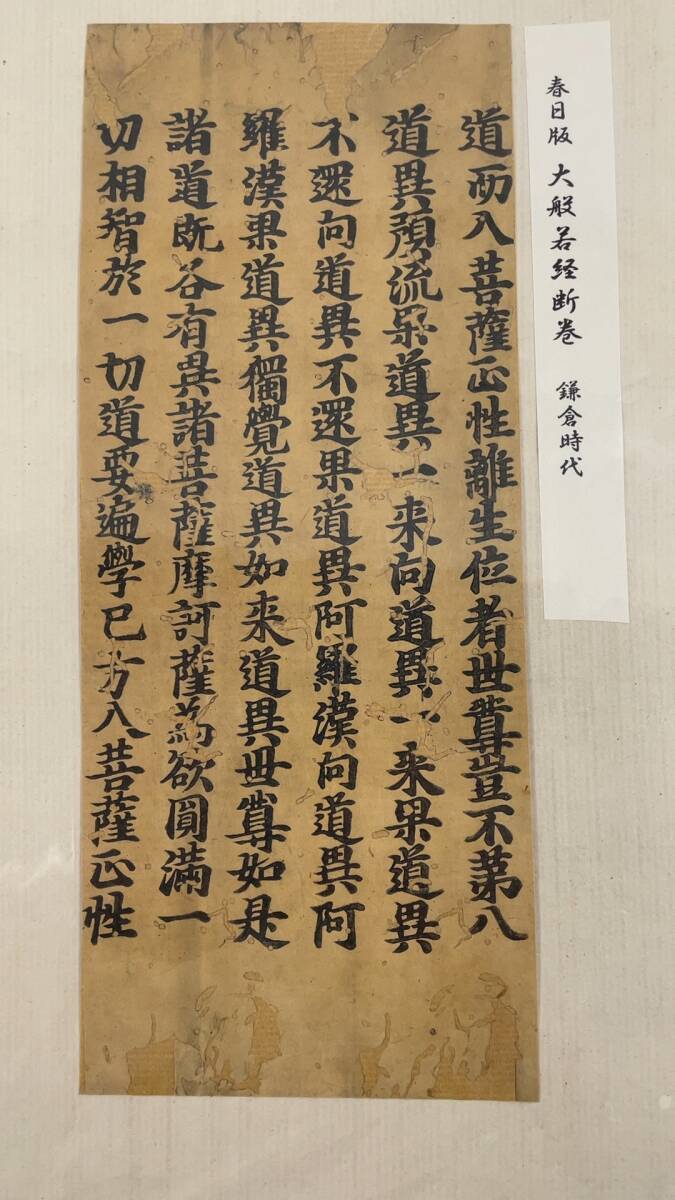 春日版 大般若経断巻 鎌倉時代
道而入菩薩正性離生位者世尊豈不第八
道異預流果道異一来向道異一来果道異
不還向道異不還果道異阿羅漢向道異阿
羅漢果道異獨覺道異如来道異世尊如是
諸道既各有異諸菩薩摩訶薩若欲圓滿一
切相智於一切道要遍學已方入菩薩正性